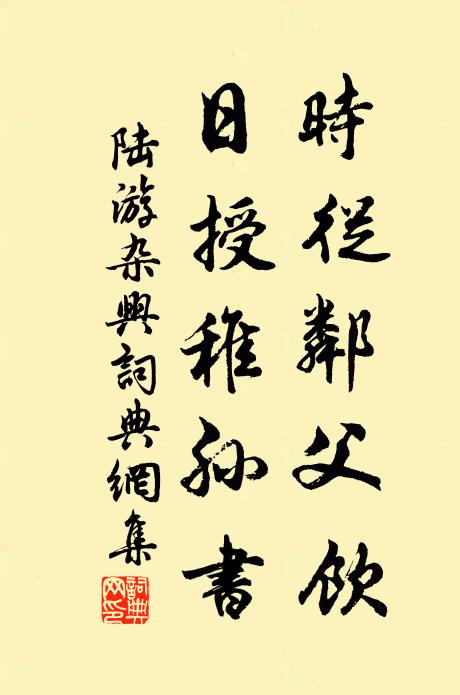 時從鄰父飲
日授稚孙書
陆游杂興詞典網集
詞典
网印